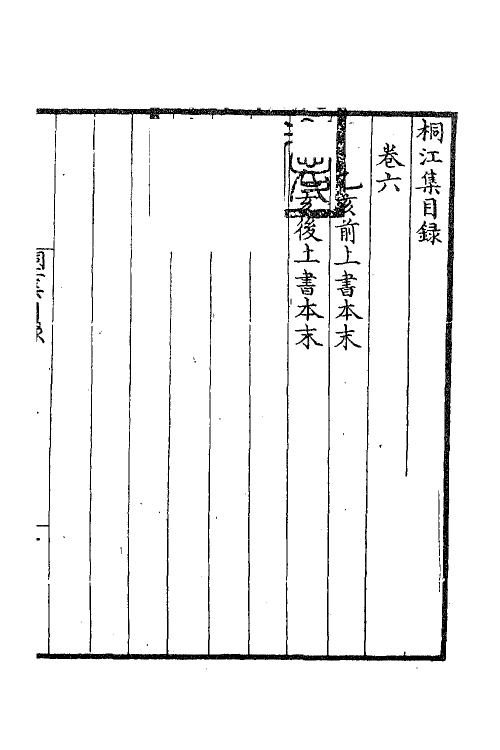 桐江集目録
卷六
乙亥前上書本末
亥後上書本末